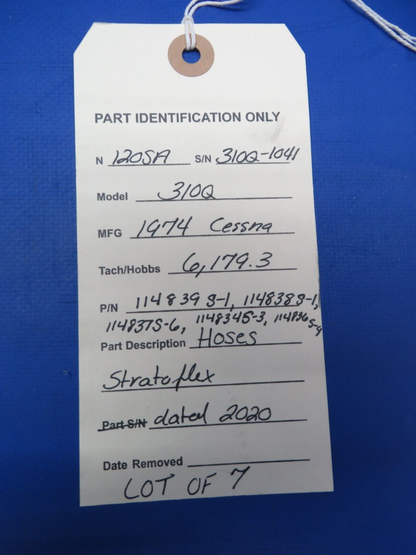 PART IDENTIFICATION ONLY
N 120SA S/N 310Q-1041
Model 310Q
MFG 1974 Cessna
Tach/Hobbs 6,179.3
P/N 114839S-1, 114838S-1,
114837S-6, 114834S-3, 114836S-4
Part Description Hoses
Stratoflex
Part S/N dated 2020
Date Removed
LOT OF 7